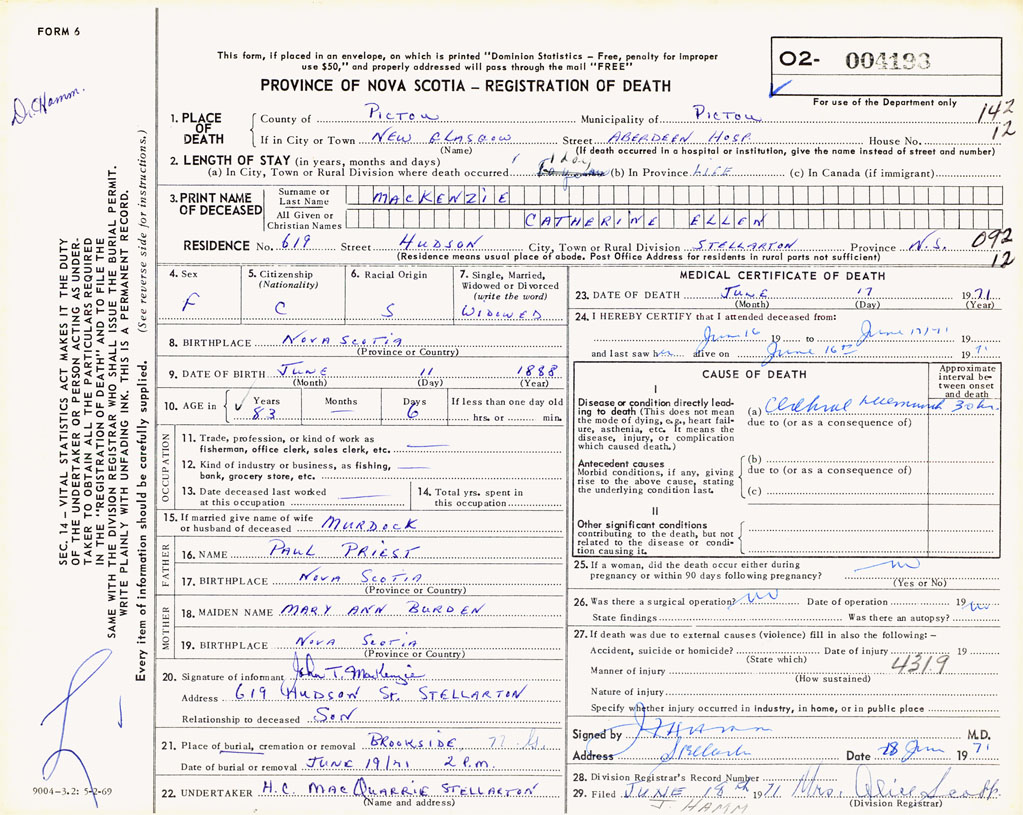 FORM 6
Dr. Hamm.
This form, if placed in an envelope, on which is printed "Dominion Statistics – Free, penalty for improper
use $50," and properly addressed will pass through the mail "FREE"
PROVINCE OF NOVA SCOTIA – REGISTRATION OF DEATH
02- 004193
For use of the Department only
142
12
1. PLACE OF DEATH
County of PICTOU Municipality of PICTOU
If in City or Town NEW GLASGOW Street ABERDEEN HOSP. House No.
(Name) (If death occurred in a hospital or institution, give the name instead of street and number)
2. LENGTH OF STAY (in years, months and days)
(a) In City, Town or Rural Division where death occurred 1 day (b) In Province LIFE (c) In Canada (if immigrant)
3. PRINT NAME OF DECEASED
Surname or Last Name MACKENZIE
All Given or Christian Names CATHERINE ELLEN
RESIDENCE No. 619 Street HUDSON City, Town or Rural Division STELLARTON Province N.S.
(Residence means usual place of abode. Post Office Address for residents in rural parts not sufficient)
092
12
4. Sex F
5. Citizenship (Nationality) C
6. Racial Origin S
7. Single, Married, Widowed or Divorced (write the word) WIDOWED
8. BIRTHPLACE NOVA SCOTIA
(Province or Country)
9. DATE OF BIRTH JUNE 11 1888
(Month) (Day) (Year)
10. AGE in Years 83 Months Days 6 If less than one day old hrs. or min.
OCCUPATION
11. Trade, profession, or kind of work as
fisherman, office clerk, sales clerk, etc.
12. Kind of industry or business, as fishing,
bank, grocery store, etc.
13. Date deceased last worked
at this occupation
14. Total yrs. spent in
this occupation
15. If married give name of wife
or husband of deceased MURDOCK
FATHER
16. NAME PAUL PRIEST
17. BIRTHPLACE NOVA SCOTIA
(Province or Country)
MOTHER
18. MAIDEN NAME MARY ANN BURDEN
19. BIRTHPLACE NOVA SCOTIA
(Province or Country)
20. Signature of informant John T. MacKenzie
Address 619 HUDSON St. STELLARTON
Relationship to deceased SON
21. Place of burial, cremation or removal BROOKSIDE, N.S.
Date of burial or removal JUNE 19/71 2 P.M.
22. UNDERTAKER H.C. MACQUARRIE STELLARTON
(Name and address)
MEDICAL CERTIFICATE OF DEATH
23. DATE OF DEATH JUNE 17 1971
(Month) (Day) (Year)
24. I HEREBY CERTIFY that I attended deceased from:
June 16 19 to June 17/71 19
and last saw her alive on June 16th 1971
CAUSE OF DEATH
Approximate interval between onset and death
I
Disease or condition directly leading to death (This does not
mean the mode of dying, e.g., heart failure, asthenia, etc. It means the
disease, injury, or complication
which caused death.)
(a) Cerebral 30 hr.
due to (or as a consequence of)
Antecedent causes
Morbid conditions, if any, giving
rise to the above cause, stating
the underlying condition last.
(b)
due to (or as a consequence of)
(c)
II
Other significant conditions
contributing to the death, but not
related to the disease or condition causing it.
25. If a woman, did the death occur either during
pregnancy or within 90 days following pregnancy? no
(Yes or No)
26. Was there a surgical operation? no Date of operation 19
State findings Was there an autopsy? no
27. If death was due to external causes (violence) fill in also the following: –
Accident, suicide or homicide? Date of injury 19
(State which)
Manner of injury 4319
(How sustained)
Nature of injury
Specify whether injury occurred in industry, in home, or in public place
Signed by J Hamm M.D.
Address Stellarton Date 18 June 1971
28. Division Registrar's Record Number
29. Filed JUNE 18th 1971 Mrs. Alice Scott
J. HAMM (Division Registrar)
SEC. 14 – VITAL STATISTICS ACT MAKES IT THE DUTY
OF THE UNDERTAKER OR PERSON ACTING AS UNDER-
TAKER TO OBTAIN ALL THE PARTICULARS REQUIRED
IN THE "REGISTRATION OF DEATH" AND TO FILE THE
SAME WITH THE DIVISION REGISTRAR WHO SHALL ISSUE THE BURIAL PERMIT.
WRITE PLAINLY WITH UNFADING INK. THIS IS A PERMANENT RECORD.
Every item of information should be carefully supplied. (See reverse side for instructions.)
9004-3.2: 5-2-69